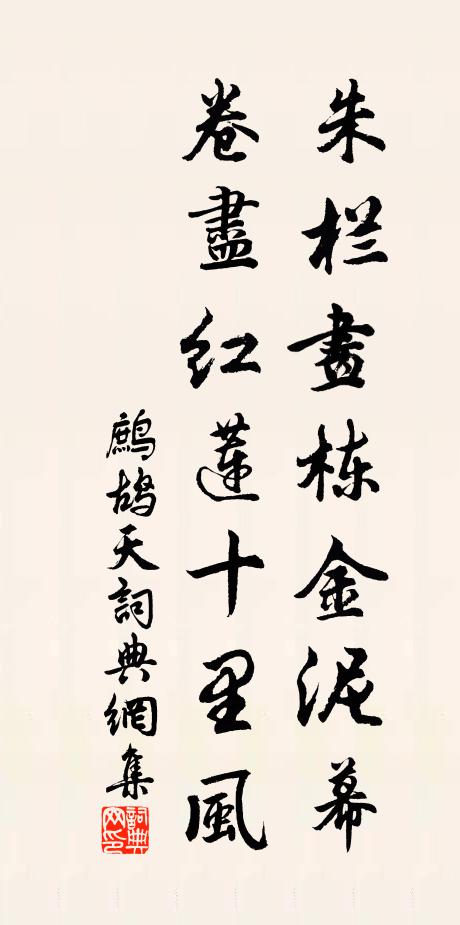 朱栏畫栋金泥幕
卷盡红蓮十里風
鷓鴣天詞典網集
詞典網印